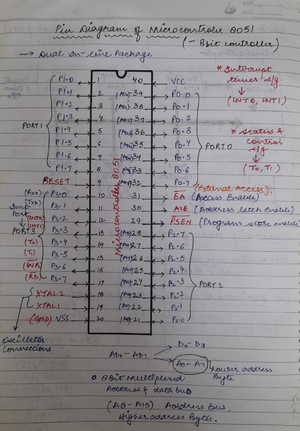 Pin Diagram of Microcontroller 8051
(- 8bit controller)
→ Dual in-line Package
P1.0 1 40 VCC
P1.1 2 39 P0.0
P1.2 3 38 P0.1
P1.3 4 37 P0.2
P1.4 5 36 P0.3
P1.5 6 35 P0.4
P1.6 7 34 P0.5
P1.7 8 33 P0.6
RESET 9 32 P0.7
(RXD) P3.0 10 31 EA (Access Enable)
(External Access)
P3.1 11 30 ALE (Address latch Enable)
(INT0) P3.2 12 29 PSEN (Program store enable)
(INT1) P3.3 13 28 P2.7
(T0) P3.4 14 27 P2.6
(T1) P3.5 15 26 P2.5
(WR) P3.6 16 25 P2.4
(RD) P3.7 17 24 P2.3
XTAL2 18 23 P2.2
XTAL1 19 22 P2.1
(GND) VSS 20 21 P2.0
PORT1
PORT 3
Microcontroller 8051
PORT0
PORT2
* Interrupt
(INT0, INT1)
* Status &
control
(T0, T1)
Oscillator
Connections
D0 - D7
AD0 - AD7
A0 - A7
Lower address
Byte
8Bit Multiplexed
Address & data bus
(A8 - A15) Address Bus.
Higher address Byte.